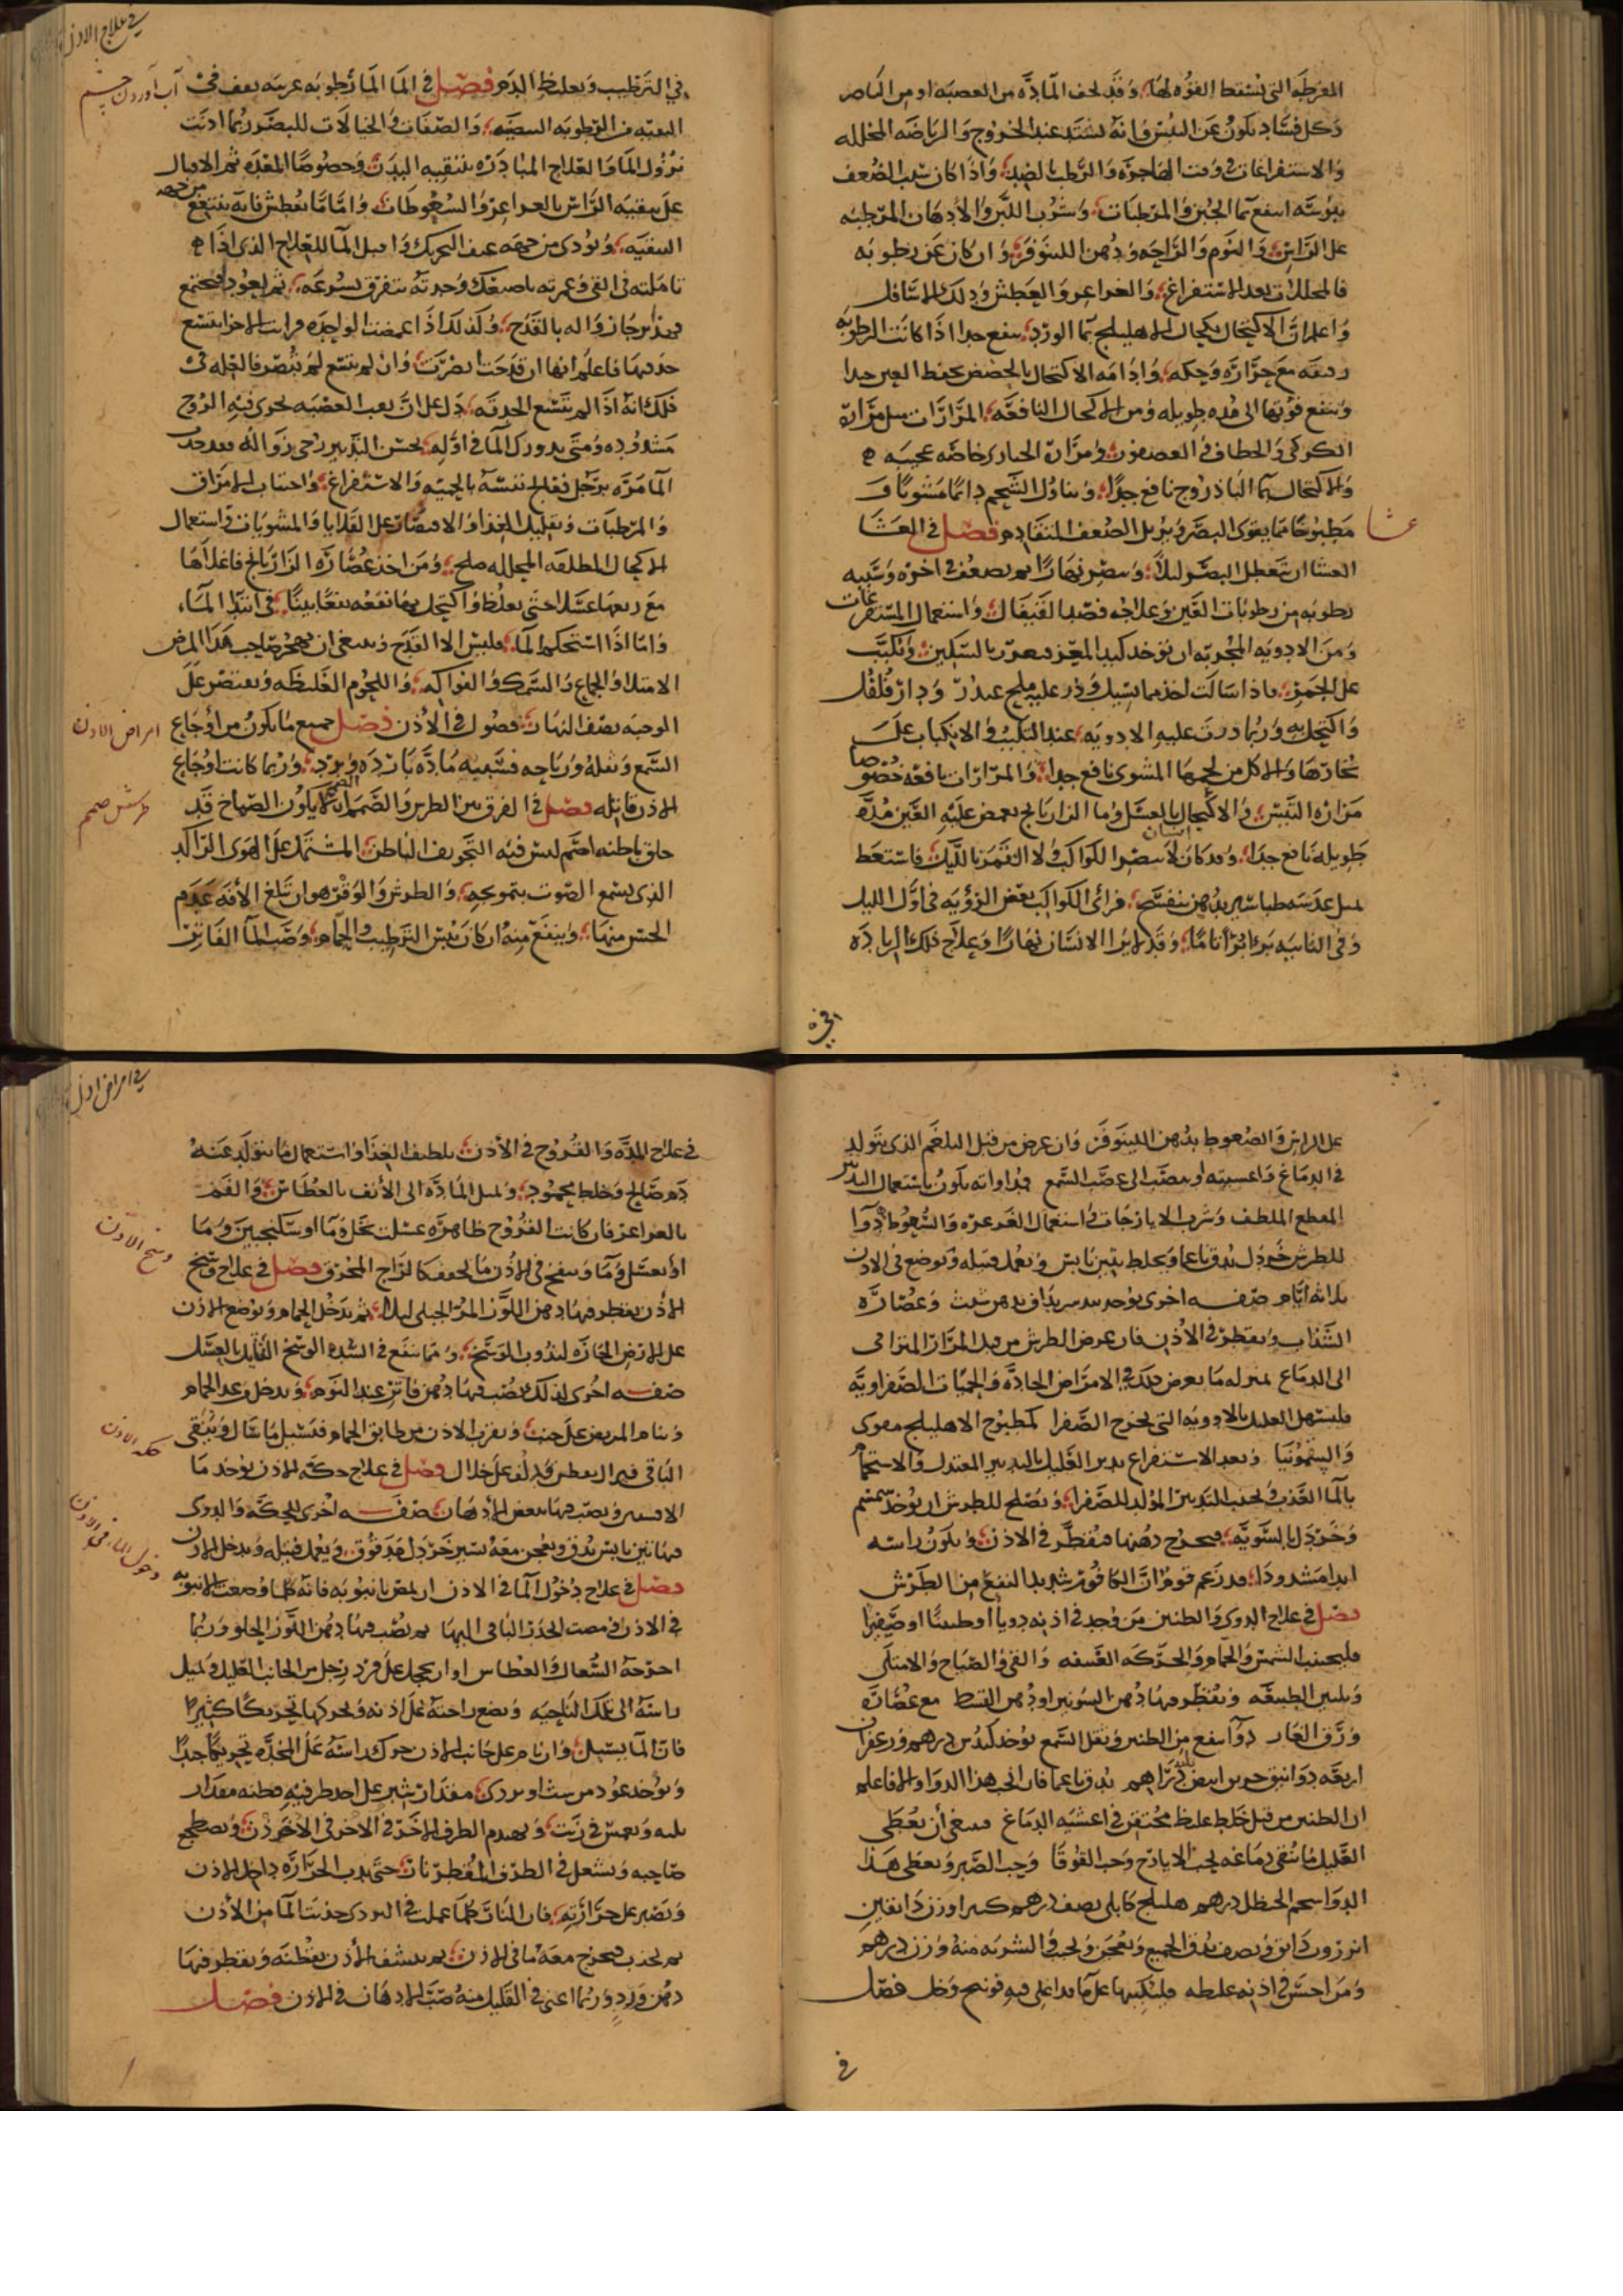 المفرطة التى تسقط القوه لها وقد تحف المادة من العصبه او من الناصر
وكل فساد يكون عن اليبس فانه يشتد عند الخروج والرياضه المحلله
والاستفراغات وفى وقت الهاجرة والرطب بالضد واذا كان سبب الضعف
يبوسة انتفع بماء الجبن والمرطبات وشرب اللبن والادهان المرطبه
على الراس والنوم والراحه ودهن اللينوفر وان كان عن رطوبه
فالمحللات بعد الاستفراغ والغراغر والعطش وذلك الاسافل
واعلم ان الاكتحال بكحال الاهليلج بماء الورد ينفع جدا اذا كانت الرطوبه
رقيقه مع حرارة وحكه وادامه الاكتحال بالحضض يحفظ العين جدا
وينفع قوتها الى مده طويله ومن الاكحال النافعه المرارات مثل مرارة
الكركى والخطاف والعصفور ومرارة الحبارى خاصه عجيبه
والاكتحال بماء الباذروج نافع جدا وتناول الشلجم دائما مشويا و
مطبوخا مما يقوى البصر ويزيل الضعف المتقادم فصل فى العشا
عشا
العشا ان يتعطل البصر ليلا ويبصر نهارا ثم يضعف فى اخره وسببه
رطوبه من رطوبات العين وعلاجه فصد القيفال واستعمال المستفرغات
ومن الادويه المجربه ان يوخذ كبد المعز فيغرز بالسكين وتكبب
على الجمر فاذا سالت اخذ ما يسيل وذر عليه ملح ودار فلفل
واكتحل به وربما ذرت عليه الادويه عند التكبيب والانكباب على
بخارها والاكل من لحمها المشوى نافع جدا والمرارات نافعه خصوصا
مرارة التيس والاكتحال بالعسل وماء الرازيانج يغمض عليه العين مده
طويله نافع جدا وقد كان انسان لا يبصر الكواكب ولا القمر بالليل فاستعط
بمثل عدسه طباشير بدهن بنفسج فراى الكواكب بعض الرؤيه فى اول الليل
وفى الثانيه برئ برا تاما وقد لا يرا الانسان نهارا وعلاج ذلك الزياده
فى علاج الاذن
فى الترطيب وتغليظ الدم فصل فى الماء الماء رطوبه غريبه تقف فى
آب آوردن چشم
الثقبه من الرطوبه البيضيه والصفات والخيالات للبصر ربما اذنت
نزول الماء والعلاج المبادره بتنقيه البدن وخصوصا المعده ثم الاقبال
على تنقيه الراس بالغراغر والسعوطات واما ما يعطش فانه ينتفع من جهه
التنقيه ويوذى من جهه عنف التحريك واقبل الماء للعلاج الذى اذا
تاملته فى الفى وغمزته باصبعك وجدته يتفرق بسرعه ثم يعود فيجتمع
فهذا يرجا زواله بالقدح وكذلك اذا غمضت الواحده فرايت الاخرا تتسع
حدقتها فاعلم انها ان قدحت ابصرت وان لم تتسع لم تبصر فالعله فى
ذلك انه اذا لم تتسع الحدقه دل على ان ثقب العصبه يجرى فيه الروح
مسدوده ومتى تدورك الماء فى اوله بحسن التدبير رجى زواله بعد حد
الماء مره برجل فعالج نفسه بالحميه والاستفراغ واجتناب الامراق
والمرطبات وتقليل الغذا والاقتصار على القلايا والمشويات واستعمال
الاكحال الملطفه المحلله صلح ومن اخذ عصارة الرازيانج فاغلاها
مع ربعها عسلا حتى يغلظ واكتحل بها نفعه نفعا بينا فى ابتدا الماء
واما اذا استحكم الماء فليس الا القدح وينبغى ان يهجر صاحب هذا المرض
الامتلا والجماع والسمك والفواكه واللحوم الغليظه ويقتصر على
الوجبه نصف النهار فصول فى الاذن فصل جميع ما يكون من اوجاع
امراض الاذن
السمع وثقله ورياحه فسببه مادة باردة وبرد وربما كانت اوجاع
الاذن قاتله فصل فى الفرق بين الطرش والصمم الصمم ان يكون الصماخ قد
طرش صمم
خلق باطنه اصم ليس فيه التجويف الباطن المشتمل على الهوى الراكد
الذى يسمع الصوت بتموجه والطرش والوقر هو ان تبلغ الآفه عدم
الحس منها وينفع منه ان كان يبس الترطيب والحمام وصب الماء الفاتر
على الراس والسعوط بدهن اللينوفر وان عرض من قبل البلغم الذى يتولد
فى الدماغ واغشيته او ينصب الى عصب السمع فمداواته يكون باستعمال التدبير
المقطع الملطف وشرب الايارجات واستعمال الغرغره والسعوط دوا
للطرش خردل يدق ناعما ويخلط بتين يابس ويعمل فتيله ويوضع فى الاذن
ثلاثة ايام صفه اخرى يوخذ جندبيدستر يداف بدهن شبت وعصارة
السذاب ويقطر فى الاذن فان عرض الطرش من قبل المرار المترامى
الى الدماغ بمنزله ما يعرض ذلك فى الامراض الحاده والحميات الصفراويه
فليسهل العليل بالادويه التى تخرج الصفرا كمطبوخ الاهليلج مقوى
والسقمونيا وبعد الاستفراغ يدبر العليل بالتدبير المعتدل والاستحمام
بالماء العذب وتجنب التدبير المولد للصفرا ويصلح للطرش ان يوخذ سمسم
وخردل بالسويه فيخرج دهنها فيقطر فى الاذن ويكون راسه
ابدا مشدودا وقد زعم قوم ان الكافور شديد النفع من الطرش
فصل فى علاج الدوى والطنين من وجد فى اذنه دويا او طنينا او صفيرا
فليجتنب الشمس والحمام والحركه العنيفه والقى والصياح والامتلى
وتليين الطبيعه ويقطر فيها دهن السوسن او دهن القسط مع عصارة
ورق الغار دوا ينفع من الطنين وثقل السمع يوخذ كندس درهم وزعفران
اربعه دوانيق ابيض ثلثه دراهم يدق ناعما فان انجب هذا الدوا والا فاعلم
ان الطنين من قبل خلط غليظ محتقن فى اغشيه الدماغ فينبغى أن يعطى
العليل ما ينقى دماغه كحب الايارج وحب القوقا وحب الصبر ويعطى هذا
الدوا شحم الحنظل درهم هليلج كابلى نصف درهم كثيرا وزن دانقين
انزروت دانق ونصف يدق الجميع ويعجن ويحبب والشربه منه وزن درهم
ومن احس فى اذنه غلظه فلينكبها على ماء قد اغلى فيه فوتنج وخل فصل
فى امراض اذن
فى علاج المدّه والقروح فى الأذن تلطيف الغذا واستعمال ما يتولد عنه
دم صالح وخلط محمود وتميل الماده الى الأنف بالعطاس والفم
بالغراغر فان كانت القروح ظاهرة غسلت بخل وماء او سكنجبين وماء
أو بعسل وماء وينفخ فى الأذن ما يجفف كالزاج المحرق فصل فى علاج وسخ
وسخ الاذن
الأذن يقطر فيها دهن اللوز المر الجبلى ليلا ثم يدخل الحمام ويوضع الاذن
على الارض الحاره لتذوب الوسخ ومما ينفع فى الوسخ القليد بالعسل
صفه اخرى لذلك يصب فيها دهن فاتر عند النوم ويدخل غد الحمام
وينام المريض على جنب ويقرب الاذن من طابق الحمام فتسيل ما سال وينقى
الباقى على خلال فصل فى علاج حكة الاذن يوخذ ماء
حكه الاذن
الافسنتين ويصب فيها بعض الأدهان صفه اخرى للحكه والدوى
فيها تين يابس يدق ويعجن معه يسير خردل قد دق ويعمل فتيله ويدخل الاذن
فصل فى علاج دخول الماء فى الاذن ان يمص بانبوبه فانه كلما وضعت الانبوبه
دخول الماء فى الاذن
فى الاذن ومصت انجذب الباقى اليها ثم يصب فيها دهن اللوز الحلو وربما
اخرجه السعال والعطاس او ان يحجل على فرد رجل من الجانب العليل ويميل
راسه الى تلك الناحيه ويضع راحته على اذنه ويحركها تحريكا كثيرا
فان الماء يسيل وان نام على جانب الاذن حرك راسه على المخدّه تحريكا جيدا
ويوخذ عود من شبث او بردى مقدار شبر على احد طرفيه قطنه مقدار
ويغمس فى زيت ويهندم الطرف الاخر فى الأذن ويضطجع
صاحبه ويشعل فى الطرف المقطر نار حتى يدب الحراره داخل الاذن
ويصبر على حرارته فان النار كلما عملت فى البردى جذبت الماء من الأذن
ثم تجذب فيخرج معه ما فى الاذن ثم ينشف الأذن بقطنه ويقطر فيها
دهن ورد وربما اغنى فى القليل منه صب الادهان فى الاذن فصل